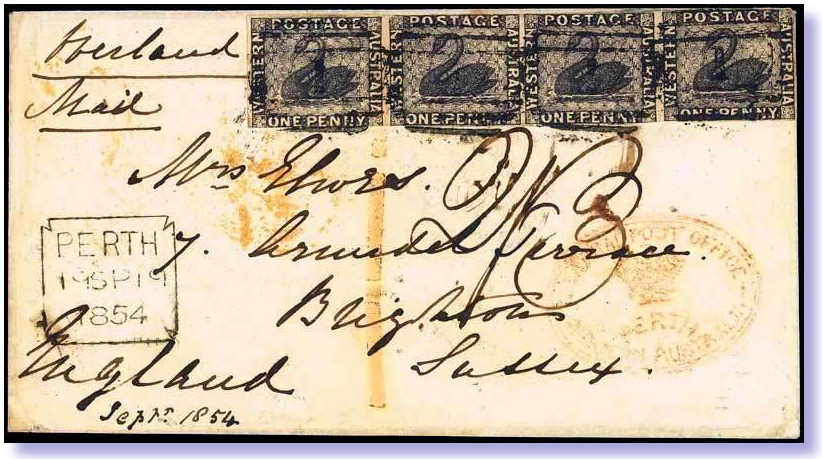 Overland
Mail
POSTAGE
WESTERN
AUSTRALIA
ONE PENNY
POSTAGE
WESTERN
AUSTRALIA
ONE PENNY
POSTAGE
WESTERN
AUSTRALIA
ONE PENNY
POSTAGE
WESTERN
AUSTRALIA
ONE PENNY
Mrs Elwes.
7. Arundel Terrace.
Brighton
Sussex.
England
Septr. 1854
PERTH
19SP19
1854
POST OFFICE
PERTH